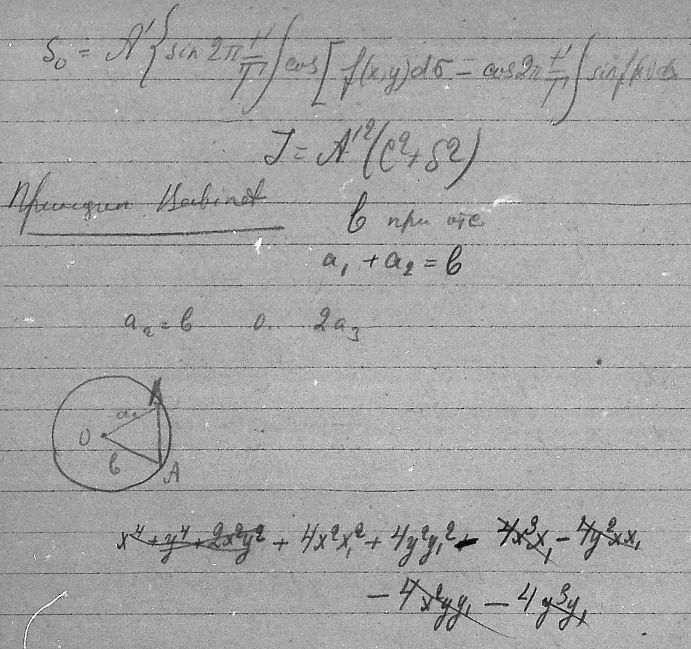 S₀ = A' { sin 2π t'/T ∫ cos [ f(x,y) dσ − cos 2π t'/T ∫ sin f(x,y) dσ
J = A'²(C² + S²)
Принцип Babinet
b при отс.
a₁ + a₂ = b
a₂ = b 0. 2a₃
a₁
O
b
A
x⁴ + y⁴ + 2x²y² + 4x²x₁² + 4y²y₁² - 4x³x₁ − 4y²xx₁
− 4x²yy₁ − 4y³y₁